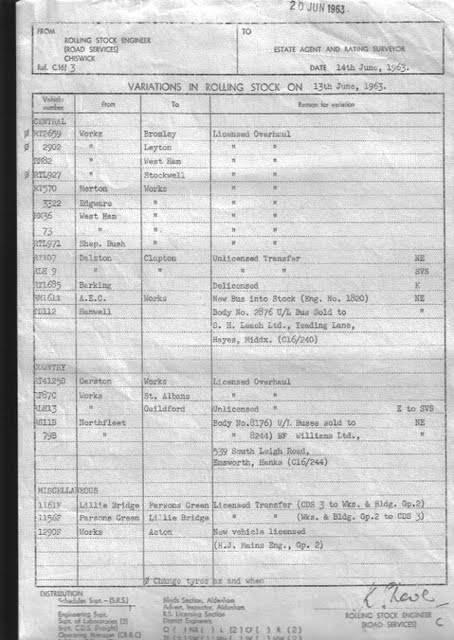 20 JUN 1963
FROM
ROLLING STOCK ENGINEER
(ROAD SERVICES)
CHISWICK
Ref. C16/3
TO
ESTATE AGENT AND RATING SURVEYOR
DATE 14th June, 1963.
VARIATIONS IN ROLLING STOCK ON 13th June, 1963.
Vehicle number From To Reason for variation
CENTRAL
Ø RT2659 Works Bromley Licensed Overhaul
Ø 2902 " Leyton " "
RM82 " West Ham " "
Ø RTL927 " Stockwell " "
RT570 Merton Works " "
3322 Edgware " " "
RM36 West Ham " " "
73 " " " "
RTL971 Shep. Bush " " "
Dalston Clapton Unlicensed Transfer NE
RLH 9 " " " " SVS
RT1685 Barking Delicensed E
RM1611 A.E.C. Works New Bus into Stock (Eng. No. 1820) NE
TD112 Hanwell Body No. 2876 U/L Bus Sold to "
S. H. Leach Ltd., Yeading Lane,
Hayes, Middx. (C16/240)
COUNTRY
RT4125B Garston Works Licensed Overhaul
GF87C Works St. Albans " "
RLH13 " Guildford Unlicensed " E to SVS
Northfleet Body No.8176) U/L Buses sold to NE
79B " " 8244) BF Williams Ltd., "
539 South Leigh Road,
Emsworth, Hanks (C16/244)
MISCELLANEOUS
1161F Lillie Bridge Parsons Green Licensed Transfer (CDS 3 to Wks. & Bldg. Gp.2)
1156F Parsons Green Lillie Bridge " " (Wks. & Bldg. Gp.2 to CDS 3)
1290F Works Acton New vehicle licensed
(H.J. Mains Eng., Gp. 2)
Ø Change tyres as and when
DISTRIBUTION
Schedules Supt. - (S.R.S.)
Engineering Supt.
Supt. of Laboratories (2)
Supt. C.D.S. (Freight)
Operating Manager (CB&C)
Works Section, Aldenham
Advert. Inspector, Aldenham
R.S. Licensing Section
District Engineers
ROLLING STOCK ENGINEER
(ROAD SERVICES)
C